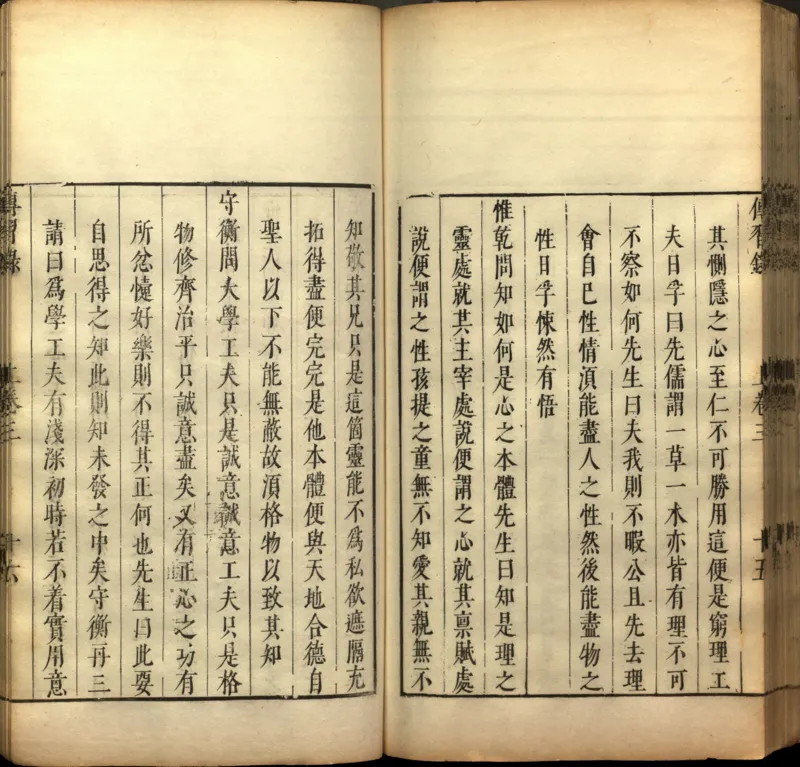 傳習錄 上卷三 十五
其惻隱之心至仁不可勝用這便是窮理工
夫日孚曰先儒謂一草一木亦皆有理不可
不察如何先生曰夫我則不暇公且先去理
會自己性情湏能盡人之性然後能盡物之
性日孚悚然有悟
惟乾問知如何是心之本體先生曰知是理之
靈處就其主宰處說便謂之心就其禀賦處
說便謂之性孩提之童無不知愛其親無不
知敬其兄只是這箇靈能不為私欲遮隔充
拓得盡便完完是他本體便與天地合德自
聖人以下不能無蔽故湏格物以致其知
守衡問大學工夫只是誠意誠意工夫只是格
物修齊治平只誠意盡矣又有正心之功有
所忿懥好樂則不得其正何也先生曰此要
自思得之知此則知未發之中矣守衡再三
請曰為學工夫有淺深初時若不着實用意
傳習錄 上卷三 十六